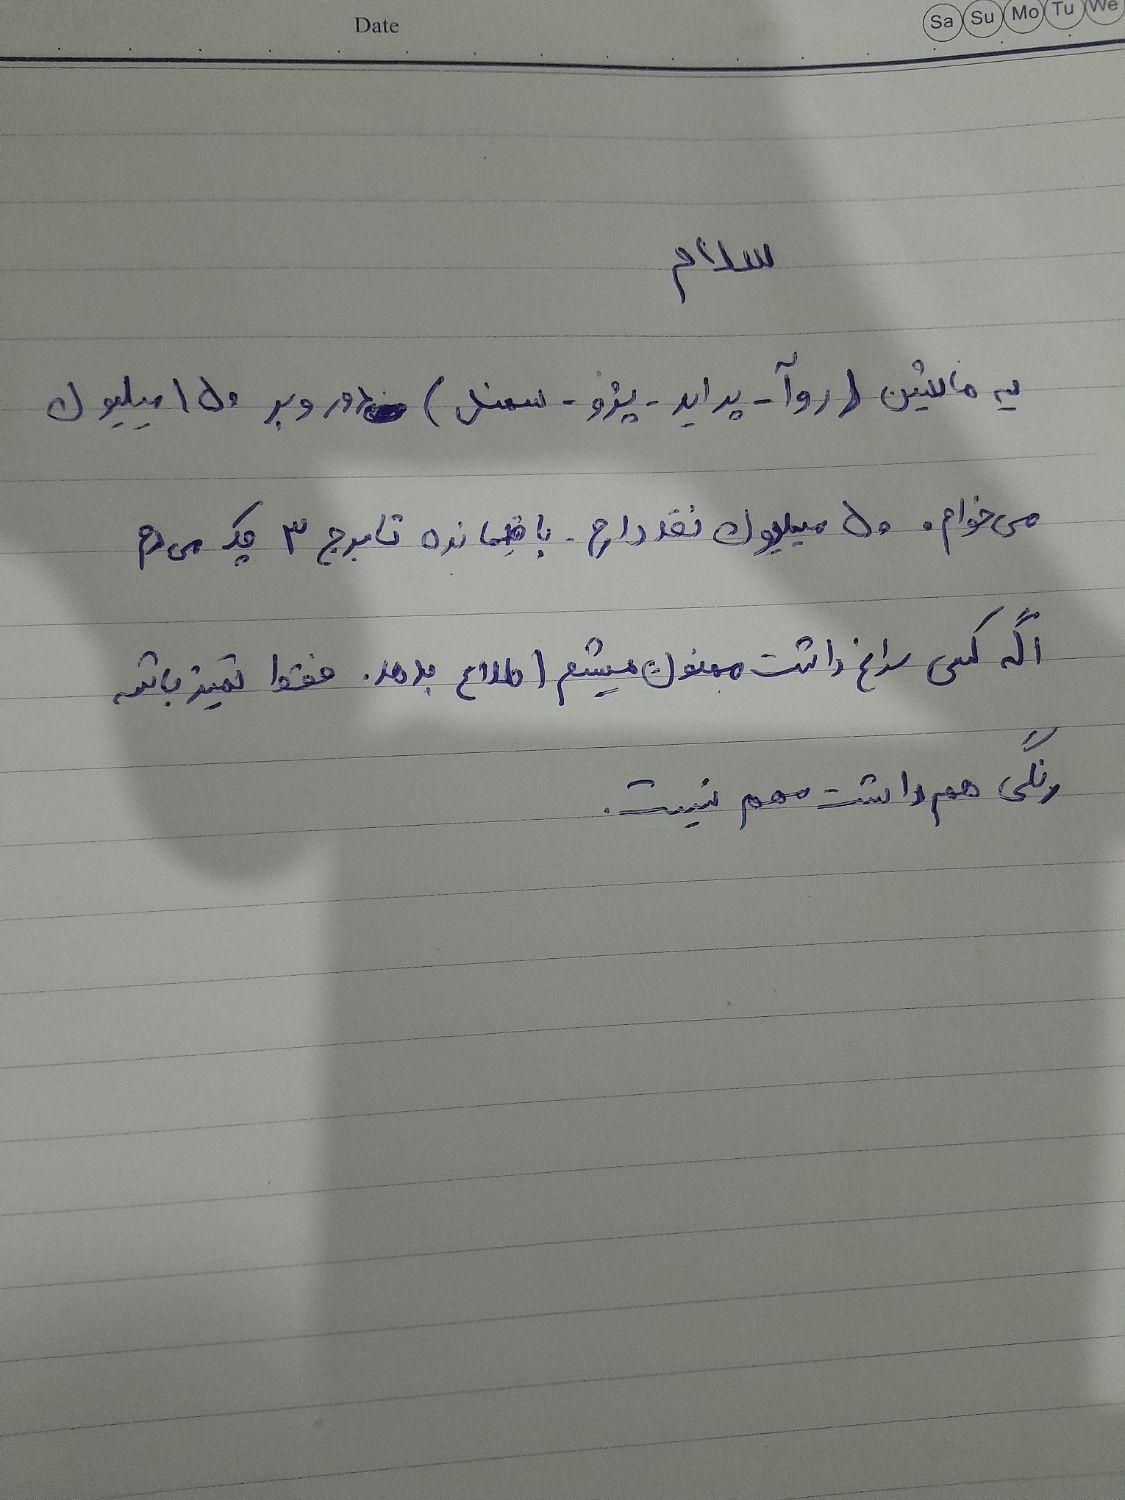 Date
Sa Su Mo Tu We
سلام
یه ماشین (روآ - پراید - پژو - سمند) دور و بر ۱۵۰ میلیون
می‌خوام. ۵۰ میلیون نقد دارم. باقیمانده تا برج ۳ چک می‌دم
اگه کسی سراغ داشت ممنون میشم اطلاع بدهد. فقط تمیز باشه
رنگی هم داشت مهم نیست.